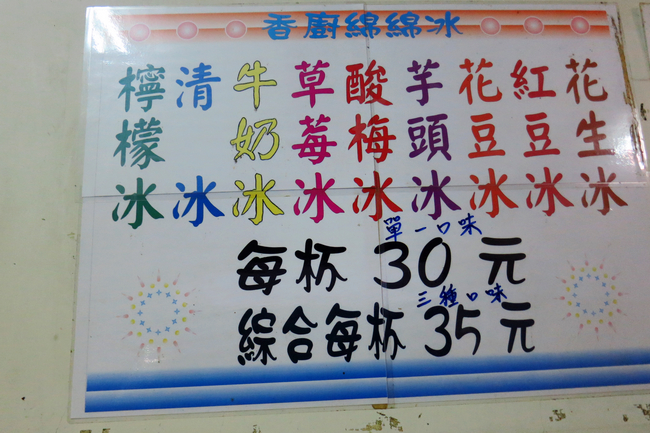 香廚綿綿冰
檸檬冰
清冰
牛奶冰
草莓冰
酸梅冰
芋頭冰
花豆冰
紅豆冰
花生冰
單一口味
每杯 30 元
三種口味
綜合每杯 35 元